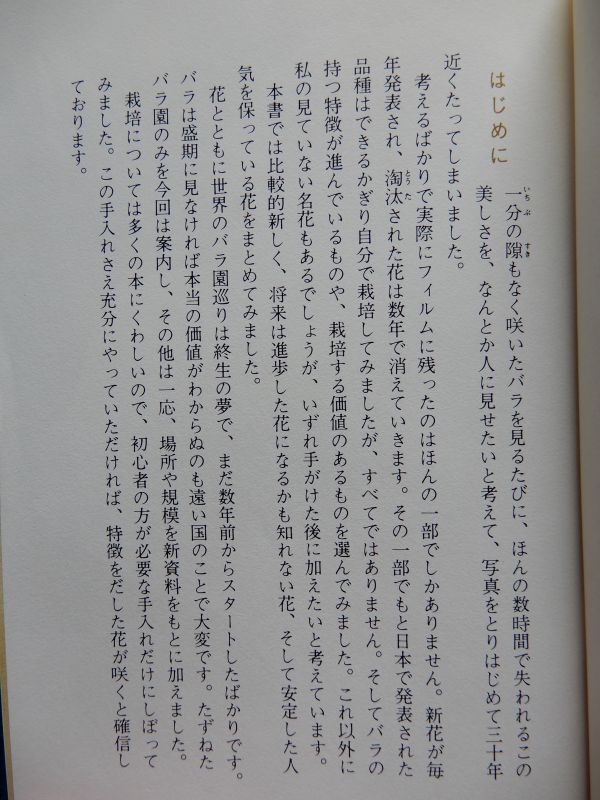 はじめに
一分の隙もなく咲いたバラを見るたびに、ほんの数時間で失われるこの
美しさを、なんとか人に見せたいと考えて、写真をとりはじめて三十年
近くたってしまいました。
考えるばかりで実際にフィルムに残ったのはほんの一部でしかありません。新花が毎
年発表され、淘汰された花は数年で消えていきます。その一部でもと日本で発表された
品種はできるかぎり自分で栽培してみましたが、すべてではありません。そしてバラの
持つ特徴が進んでいるものや、栽培する価値のあるものを選んでみました。これ以外に
私の見ていない名花もあるでしょうが、いずれ手がけた後に加えたいと考えています。
本書では比較的新しく、将来は進歩した花になるかも知れない花、そして安定した人
気を保っている花をまとめてみました。
花とともに世界のバラ園巡りは終生の夢で、まだ数年前からスタートしたばかりです。
バラは盛期に見なければ本当の価値がわからぬのも遠い国のことで大変です。たずねた
バラ園のみを今回は案内し、その他は一応、場所や規模を新資料をもとに加えました。
栽培については多くの本にくわしいので、初心者の方が必要な手入れだけにしぼって
みました。この手入れさえ充分にやっていただければ、特徴をだした花が咲くと確信し
ております。